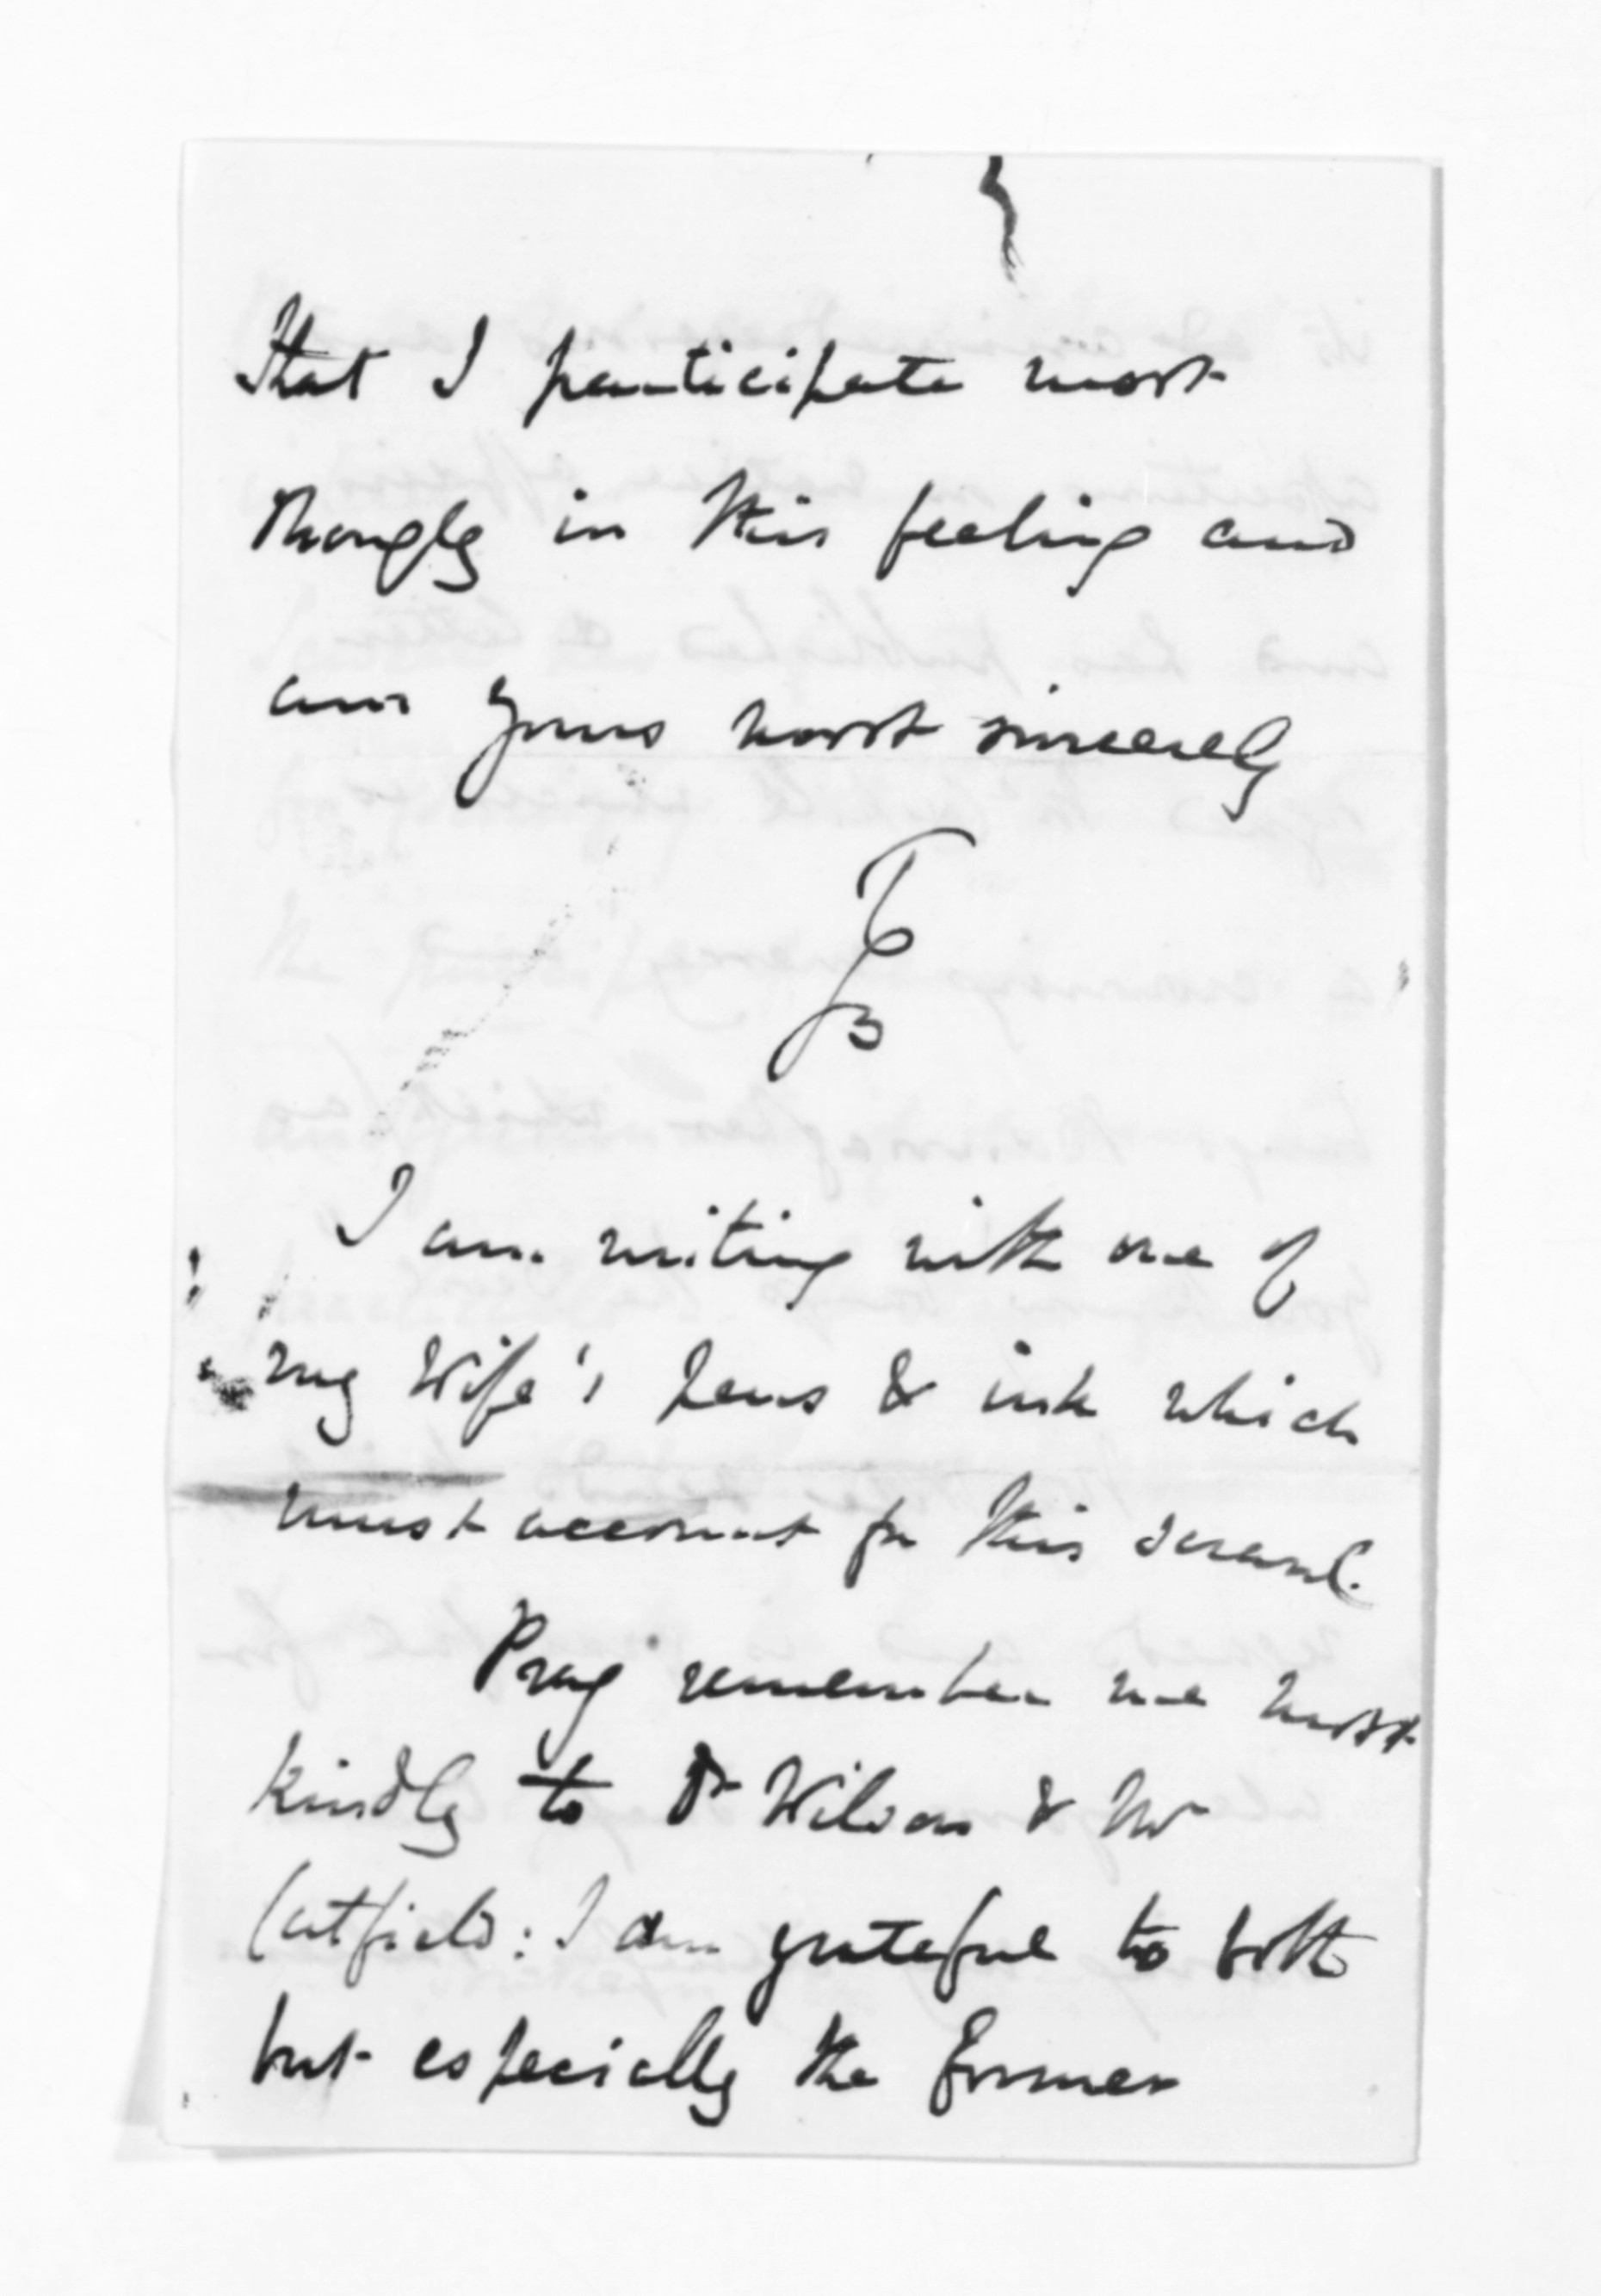 that I participate most
strongly in this feeling and
am yours most sincerely
I am writing with one of
my Wife's pens & ink which
must account for this scrawl.
Pray remember me most
kindly to Dr Wilson & Mr
Catfield: I am grateful to both
but especially the former